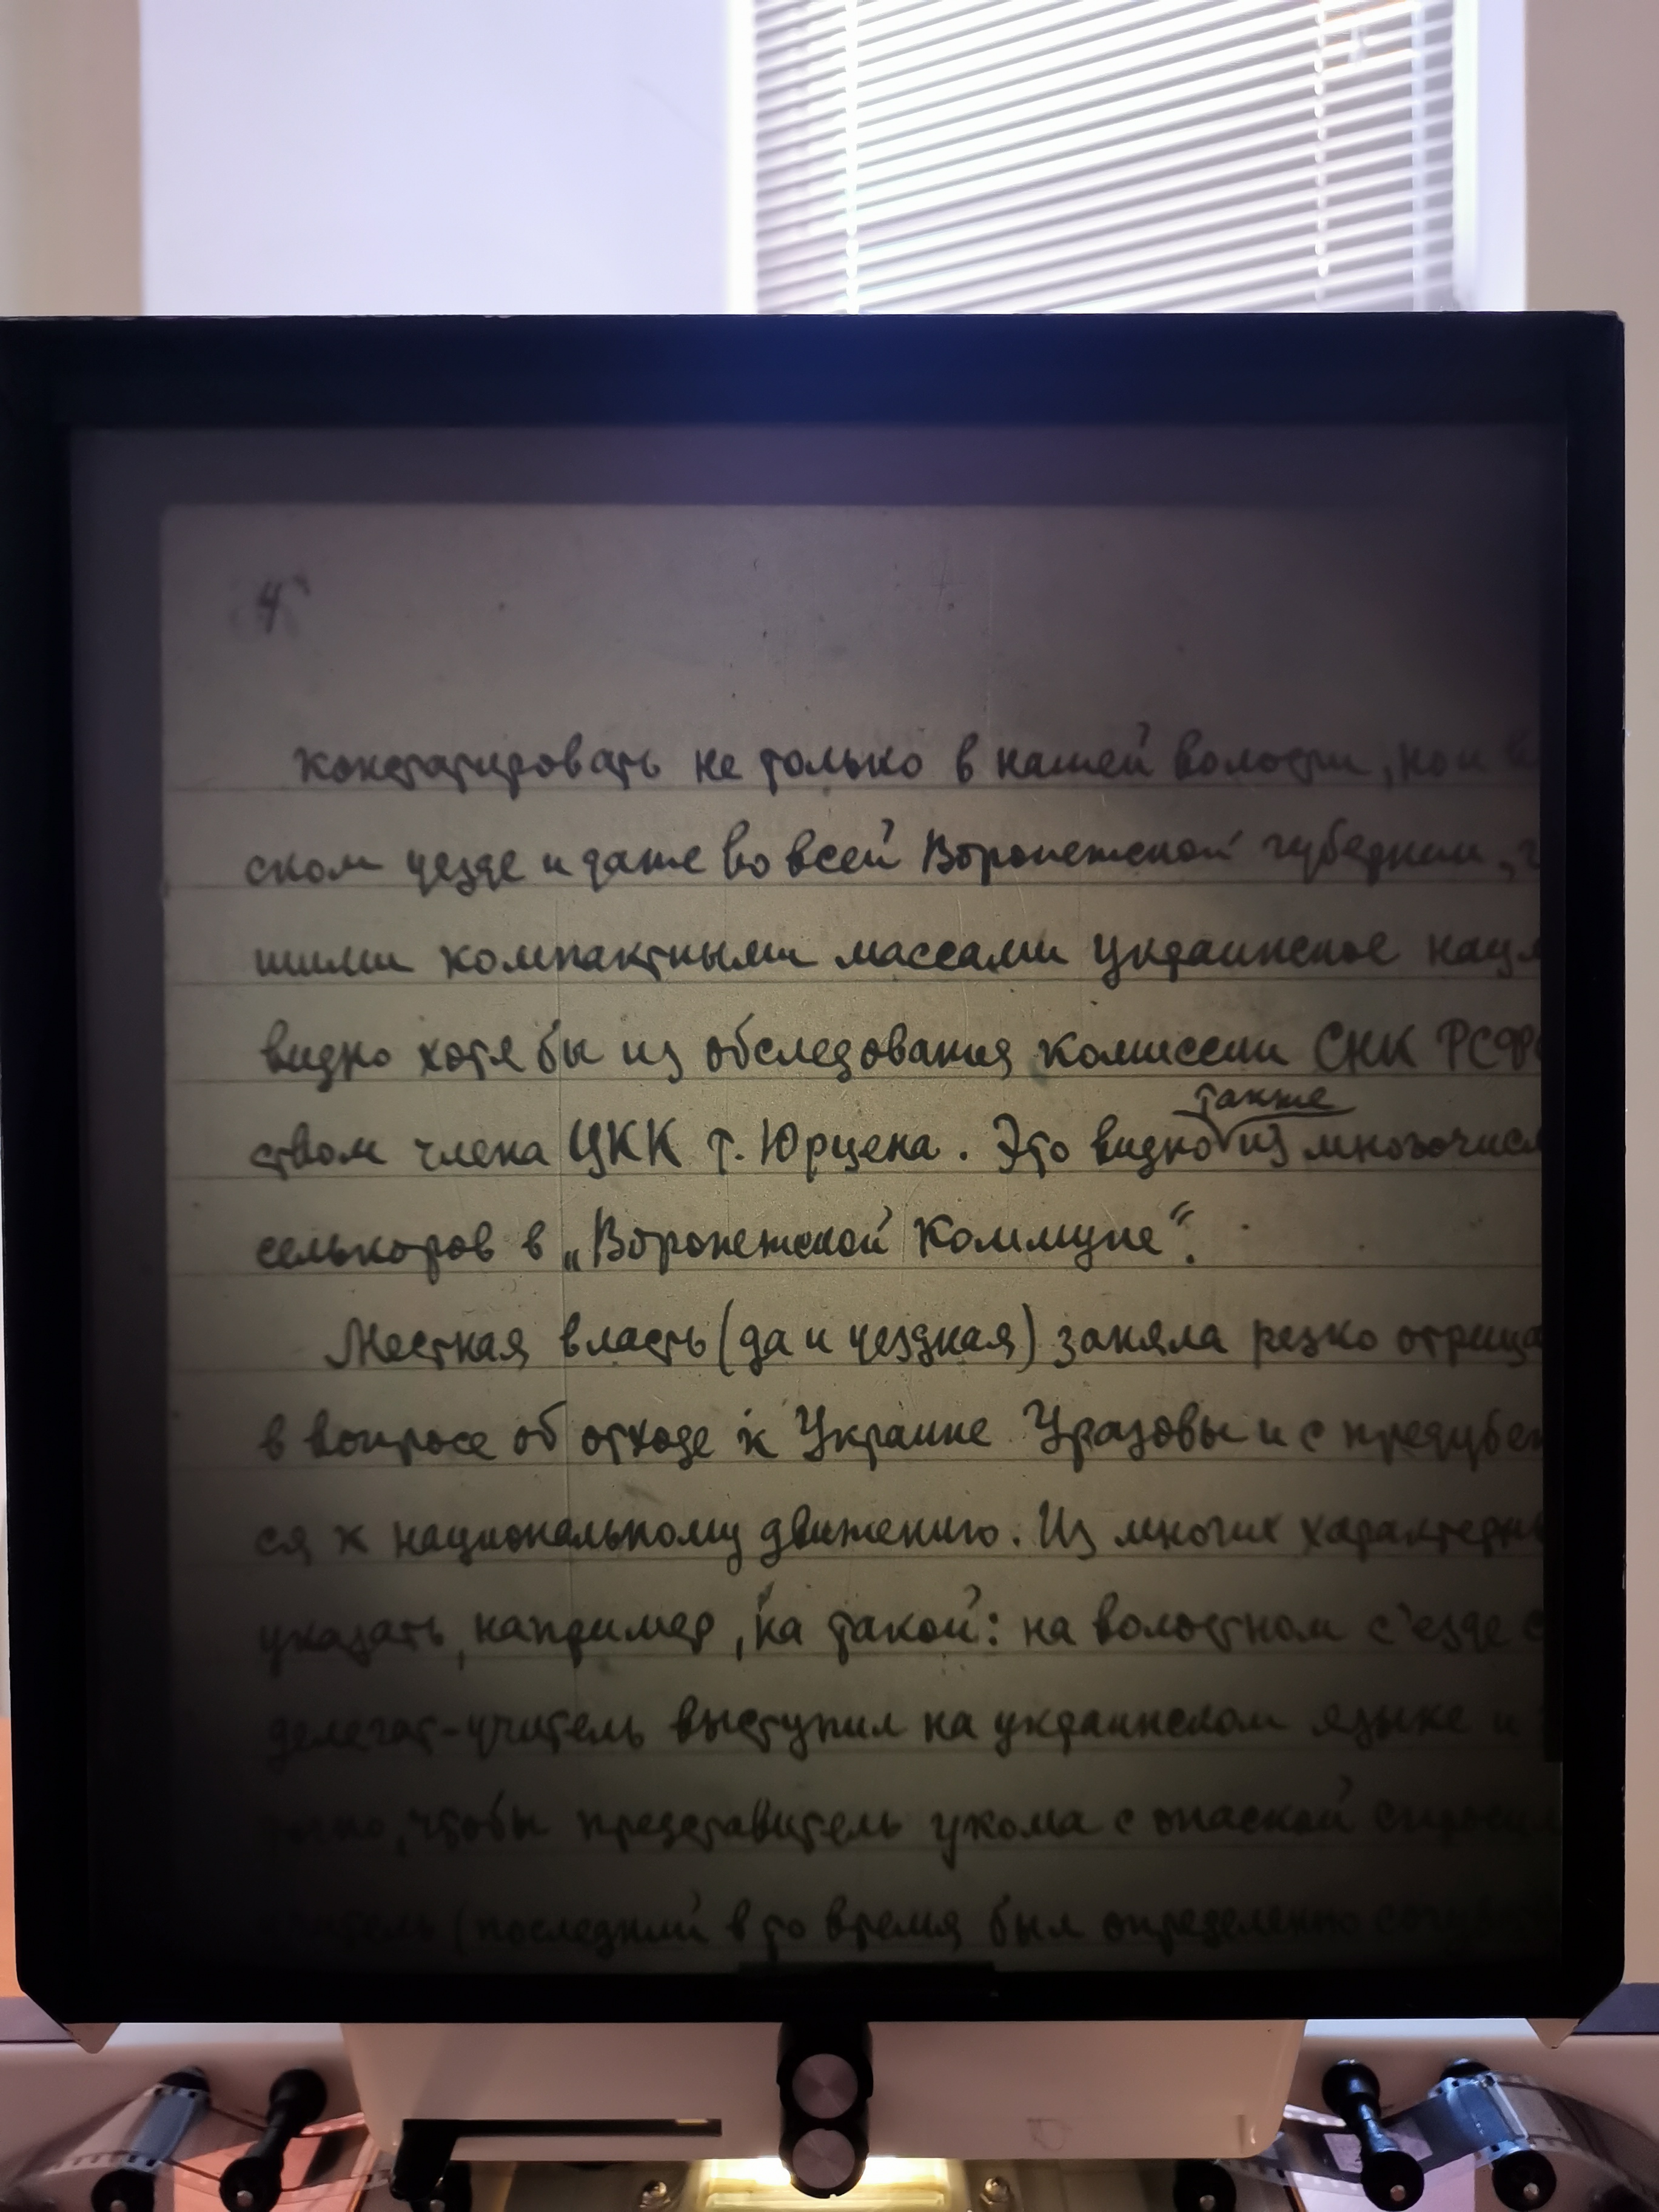 4
констатировать не только в нашей волости, но и
ском уезде и даже во всей Воронежской губернии,
шими компактными массами украинское нац
видно хотя бы из обследования комиссии СНК РСФС
также
ством члена ЦКК т. Юрцена. Это видно из многочисл
селькоров в „Воронежской Коммуне“.
Местная власть (да и уездная) заняла резко отрица
в вопросе об отходе к Украине Уразовы и с предубеж
ся к национальному движению. Из многих характерн
указать, например, на такой: на волостном с'езде с
делегат-учитель выступил на украинском языке и
чтобы представитель укома с опаской спросил
(последний в то время был определенно